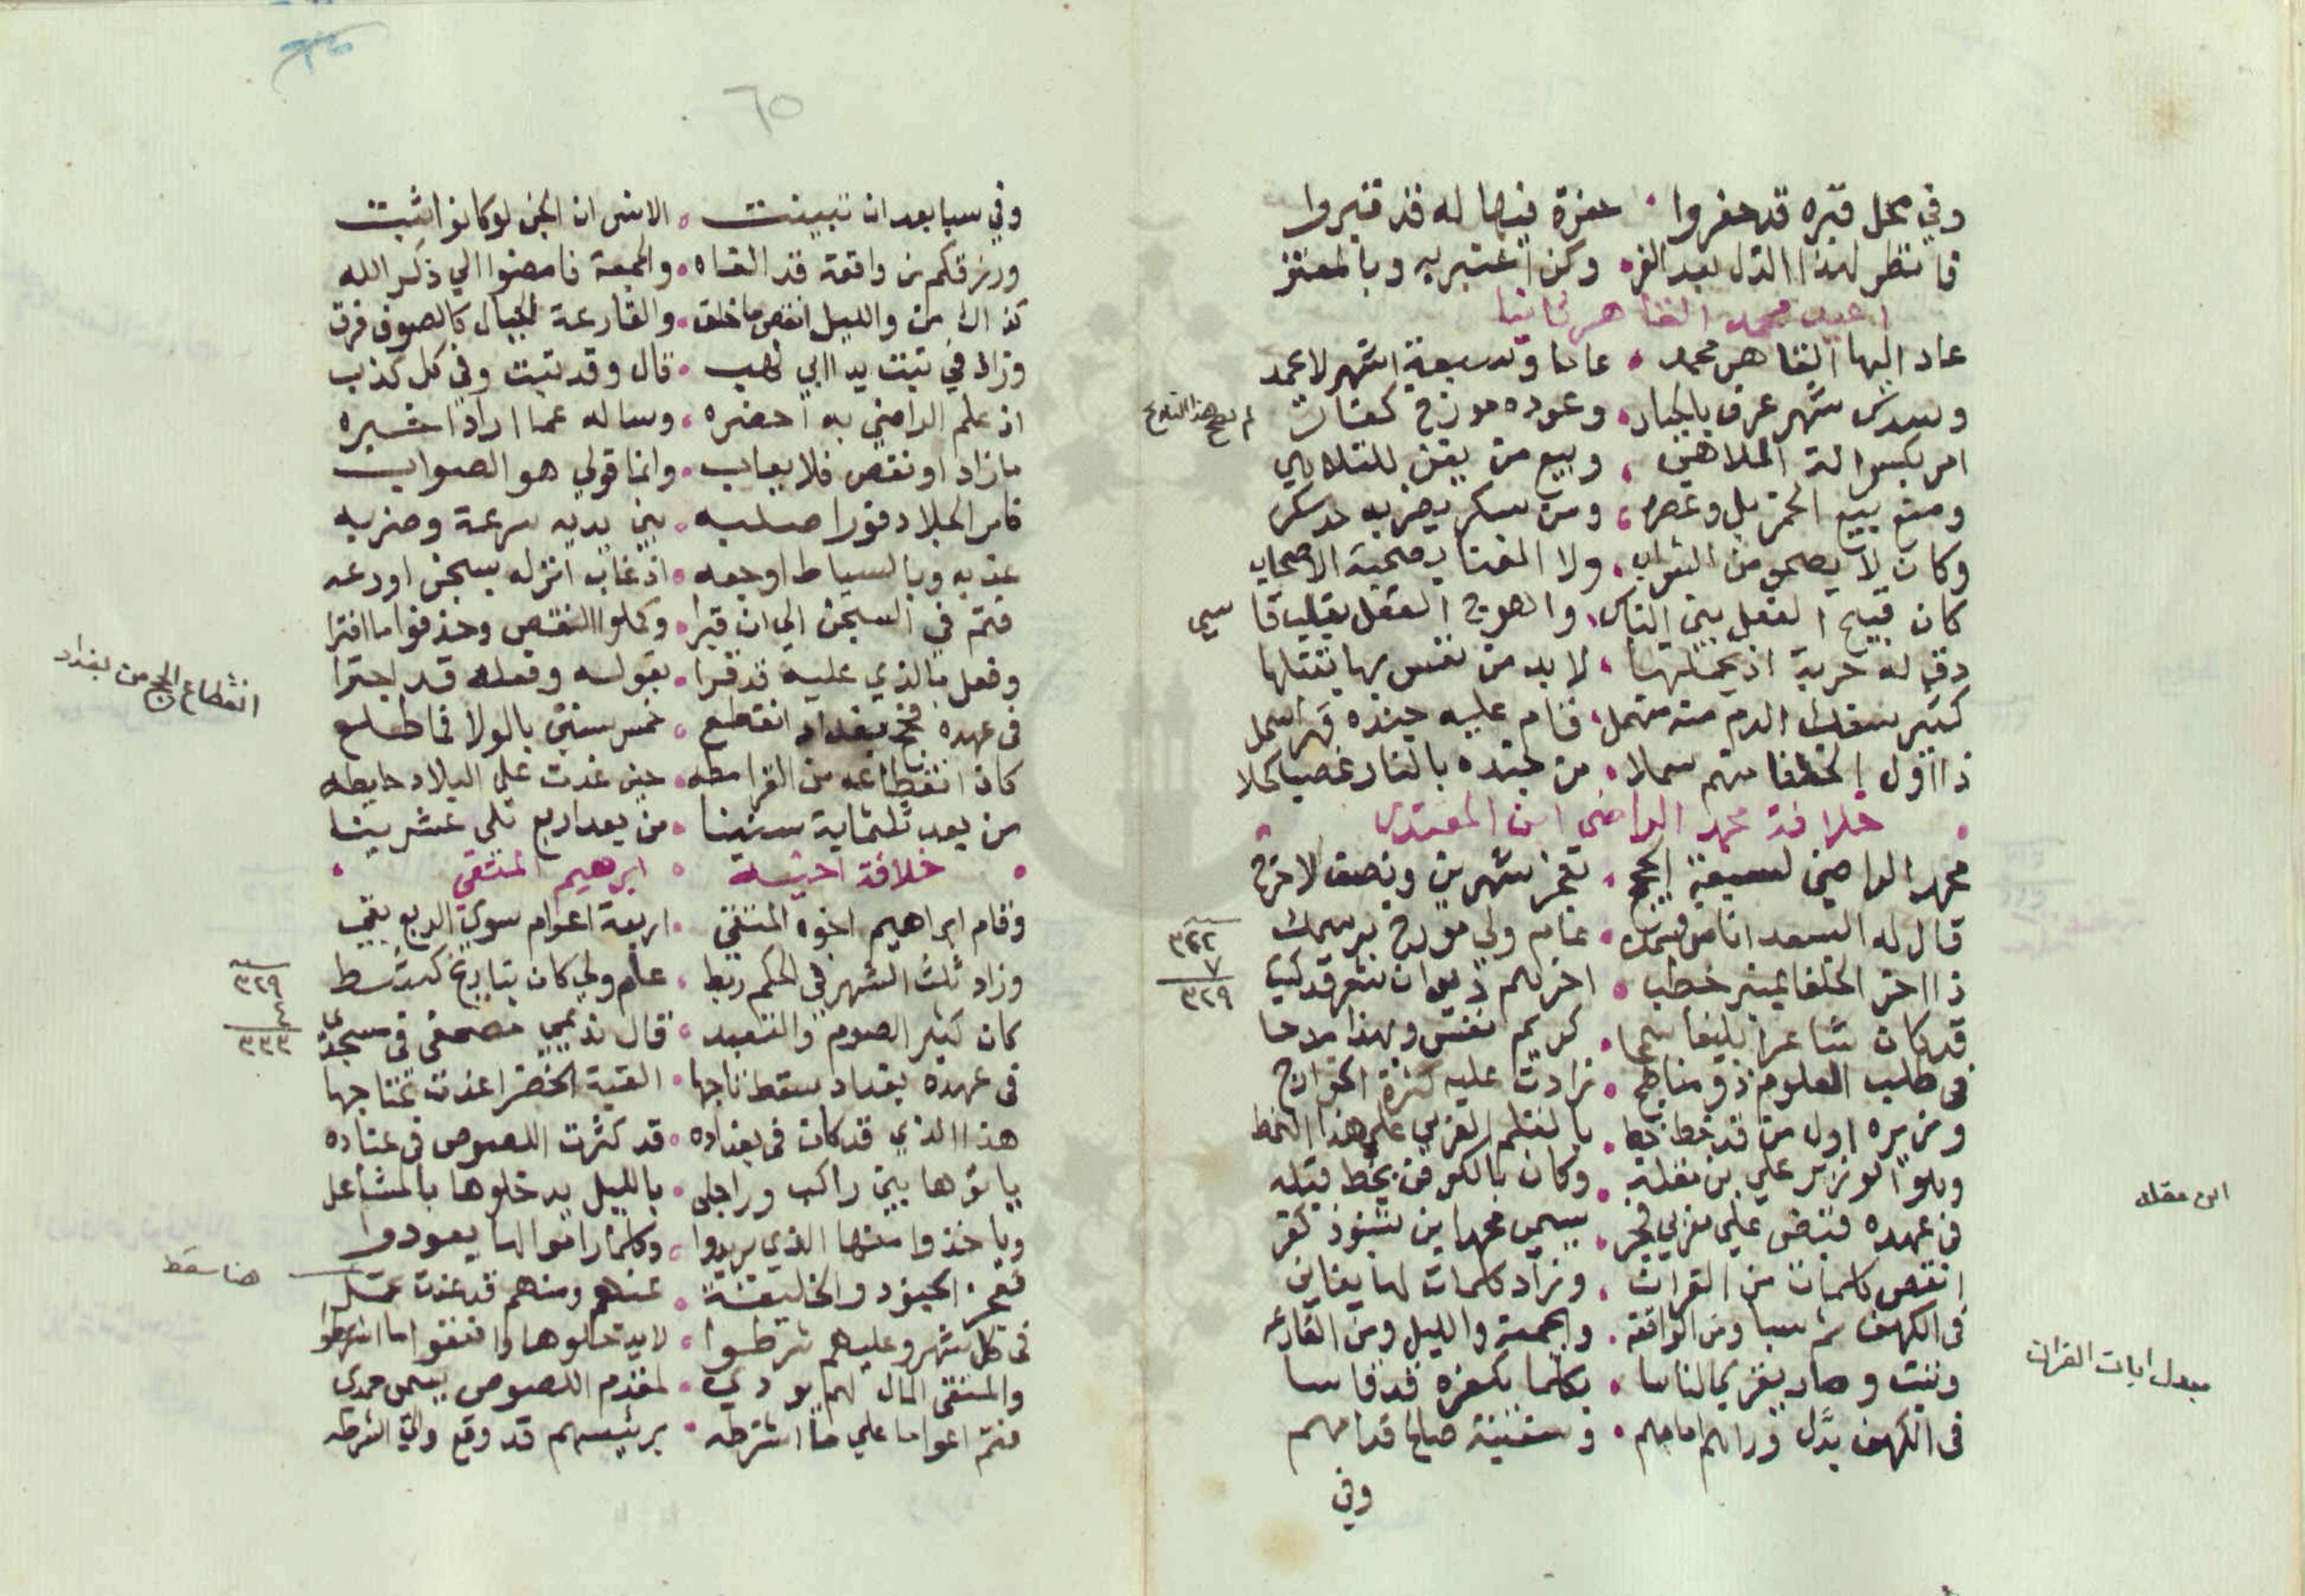 وفي محل قبره قد حفروا • حفرة فيها له قد قبروا
فانظر لهذا الذل بعد العز • وكن اعتبر به وبالمعتز
اعيد محمد القاهر ثانيا
عاد اليها القاهر محمد • عاما وسبعة اشهر لاعمد
وسدس شهر عرف بالجبار • وعوده مورخ
لم يصح هذا التاريخ
امر بكسر الة الملاهي • وبيع من يغني
ومنع بيع الخمر بل وعصره • ومن سكر يضربه
وكان لا يصحو من الشراب • ولا المغنا بصحبة الاصحاب
كان قبيح الفعل بين الناس • والهوج العقل بقلب قاسي
له حربة اذ يحملها • لا بد من نفس بها يقتلها
كثير سفك الدم منه • فقام عليه جنده قهرا سمل
ذا اول الخلفا منهم سملا • من جنده بالنار غصبا كحلا
خلافة محمد الراضي ابن المقتدر
محمد الراضي لسبعة • شهرين ونصف
قال له السعد • عام ولي مورخ
٣٢٢
٧
٣٢٩
ذا اخر الخلفا بمنبر خطب • اخرهم ديوان شعر قد كتب
قد كان شاعرا بليغا سمحا • كريم نفس وبهذا مدحا
في طلب العلوم ذو مناهج • زادت عليه كثرة الخوارج
وزيره اول من قد خط خط • بالقلم العربي علي هذا النمط
الوزير علي بن مقلة • وكان بالكوفي يخط قبله
ابن مقله
في عهده قبض علي مغربي فجر • يسمي محمد ابن شنبوذ كفر
انقص كلمات من القران • وزاد كلمات لها يعاني
في الكهف ثم سبا ومن الواقعه • والجمعة والليل ومن القارعه
وتبت وصار يقري الناسا • بكلما بكفره قد قاسا
مبدل ايات القران
في الكهف بدل وراهم امامهم • وسفينة صالح قدامهم
وفي
٦٥
وفي سبا بعد ان تبينت • الانس ان الجن لو كانوا اثبت
ورزقكم من واقعة قد القاه • والجمعة فامضوا الي ذكر الله
كذاك من والليل انقص ما خلق • والقارعة الجبال كالصوف فرق
وزاد في تبت يدا ابي لهب • قال وقد تبت وفي كل كذب
اذ علم الراضي به احضره • وساله عما اراد اخبره
ما زاد او نقص فلا يعاب • وانما قولي هو الصواب
فامر الجلاد فورا صلبه • بين يديه سرعة وضربه
عذبه وبالسياط اوجعه • اذ غاب انزله بسجن اودعه
فتم في السجن الي ان قبرا • وكملوا النقص وحذفوا ما افترا
وفعل بالذي عليه قد • بقوله وفعله قد اجترا
في عهده حج بغداد انقطع • خمس سنين بالولا فاطلع
انقطاع الحج من بغداد
كان انقطاعه من القرامطه • حين غدت علي البلاد حايطه
من بعد ثلثماية سنينا • من بعد اربع تلي عشرينا
خلافة اخيه • ابرهيم المتقي
وقام ابراهيم اخوه المتقي • اربعة اعوام سوي الربع بقي
وزاد ثلث الشهر في الحكم ربط • عام ولي كان بتاريخ
٣٢٩
٤
٣٣٣
كان كثير الصوم والتعبد • قال نديمي مصحفي في مسجدي
في عهده بغداد سقط تاجها • القبة الخضرا غدت
هذا الذي قد كان في بغداده • قد كثرت اللصوص في عناده
ياتوها بين راكب وراجل • بالليل يدخلوها بالمشاعل
وياخذوا منها الذي يريدوا • وكلما راموا لها يعودوا
هنا سقط
فعجز الجنود والخليفة • عنهم ومنهم قد غدت
في كل شهر وعليهم شرطوا • لا يدخلوها واتفقوا ما اشرطوا
والمتقي المال لهم يودي • لمقدم اللصوص يسمي حمدي
فتم اعواما علي ما اشترطه • برئيسهم قد وقع والي الشرطه